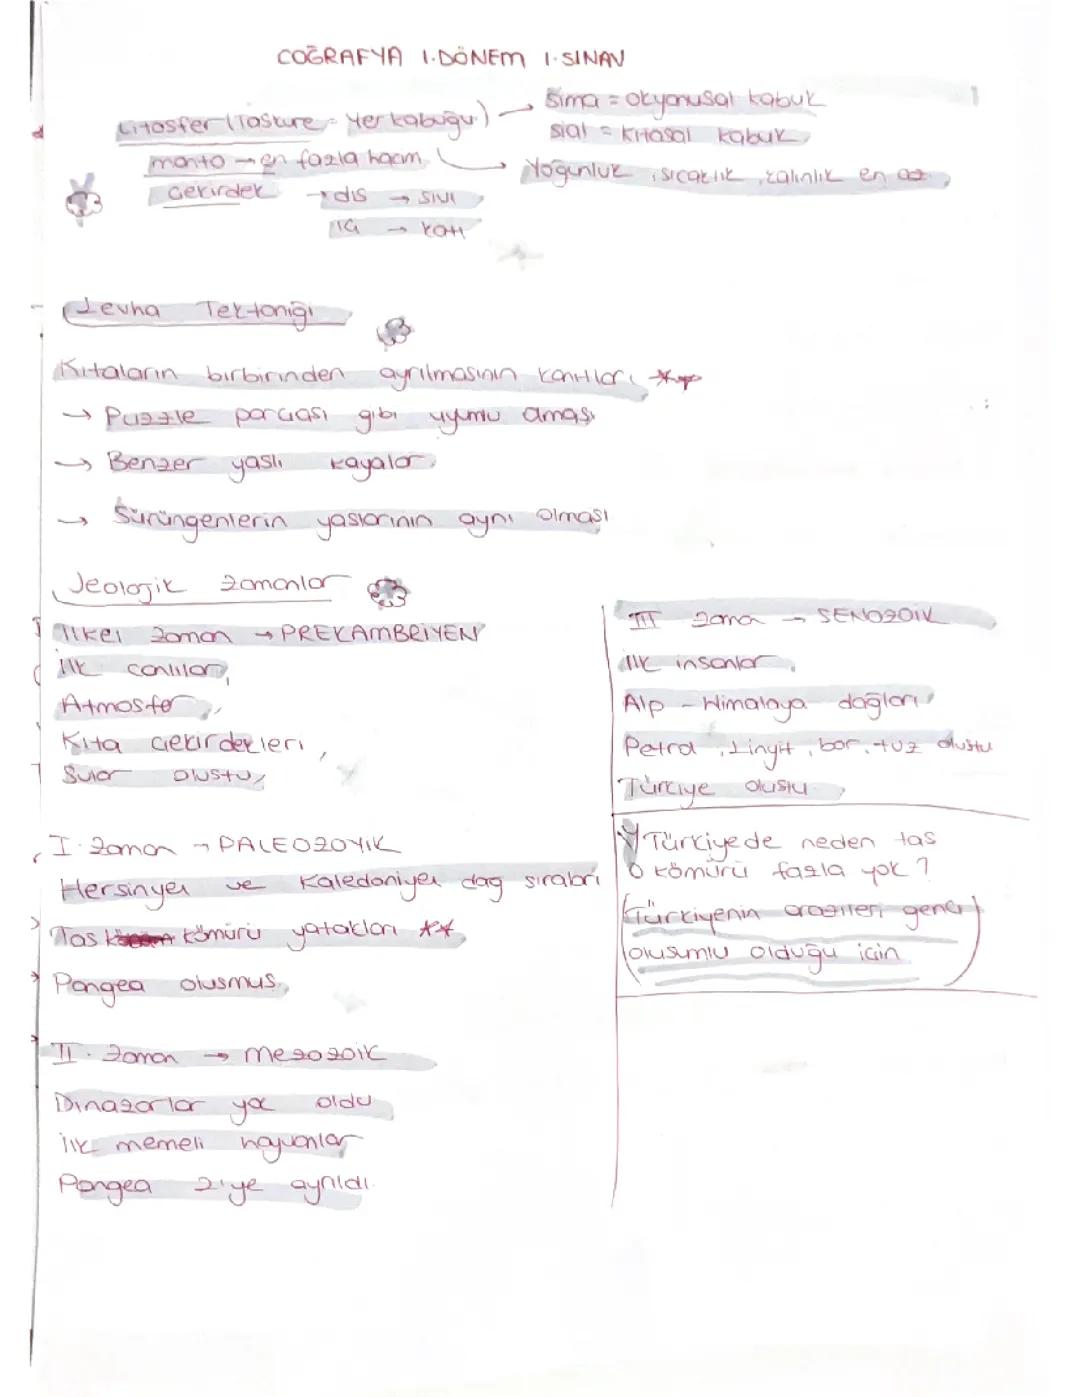 COĞRAFYA 1.DÖNEM 1.SINAV
Litosfer (Taşküre - Yer kabuğu) → sima = okyanusal kabuk
sial = kıtasal kabuk
manto → en fazla hacim → Yoğunluk, sıcaklık, kalınlık en az
Çekirdek → dış → sıvı
iç → katı
Levha Tektoniği
Kıtaların birbirinden ayrılmasının kanıtları **
→ Puzzle parçası gibi uyumlu olması
→ Benzer yaşlı kayalar
→ Sürüngenlerin yaşlarının aynı olması
Jeolojik Zamanlar
İlkel Zaman → PREKAMBRİYEN
İlk canlılar,
Atmosfer,
Kıta çekirdekleri,
Sular oluştu
I. Zaman → PALEOZOYIK
Hersinyen ve Kaledoniyen dağ sıraları
Taş kömürü yatakları **
Pangea oluşmuş
II. Zaman → MEZOZOİK
Dinazorlar yok oldu
ilk memeli hayvanlar
Pangea 2'ye ayrıldı.
III Zaman → SENOZOİK
İlk insanlar
Alp - Himalaya dağları
Petrol, Linyit, bor, tuz oluştu
Türkiye oluştu
Türkiyede neden taş
kömürü fazla yok?
Türkiyenin arazileri genç
oluşumlu olduğu için